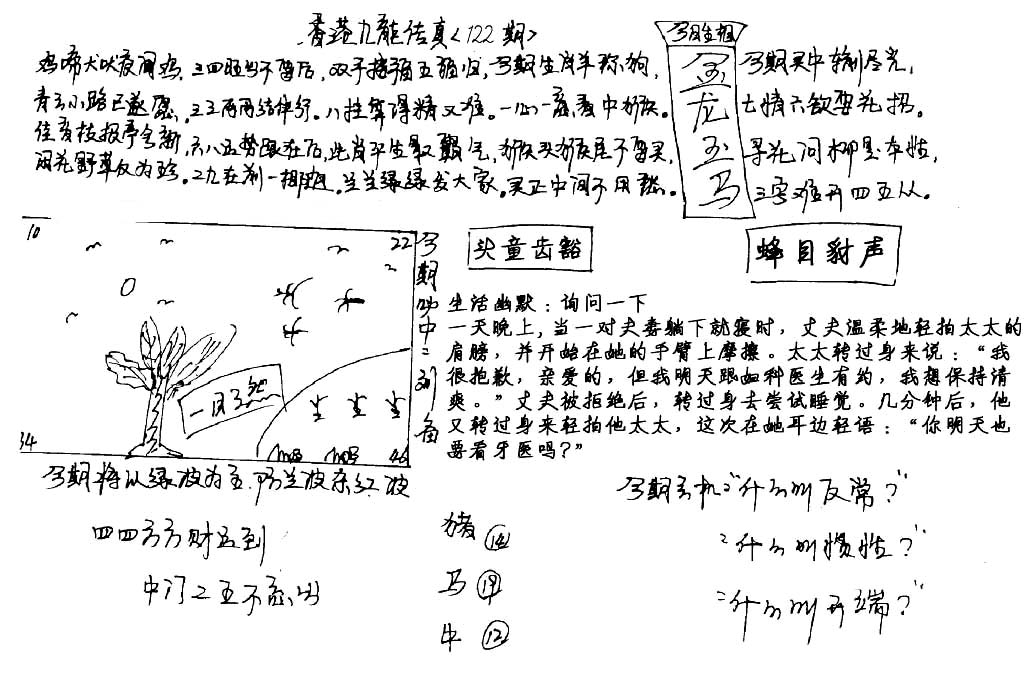 香港九龍传真<122期>
鸡啼犬吠夜闹鸡,三四旺出不要后,双手摇摇五强归,今期生肖羊称狗,
青云小路已遂愿,二三两两结伴行。八挂算得精又准。一心一意表中猴。
佳音枝报季全新,六八五势跟在后,此肖平生最霸气,猴头猴尾不要买,
闲花野草反为珍。二九在前一排跑,兰兰绿绿发大家。买正中间不用愁。
今日生相
金
龙
玉
马
今期买中输到尽光,
七情六欲要花招。
寻花问柳是本性,
三字难开四五从。
10
22
34
46
一目了然
今期必中二到角
头童齿豁
蜂目豺声
生活幽默:询问一下
一天晚上,当一对夫妻躺下就寝时,丈夫温柔地轻拍太太的
肩膀,并开始在她的手臂上摩擦。太太转过身来说:“我
很抱歉,亲爱的,但我明天跟妇科医生有约,我想保持清
爽。”丈夫被拒绝后,转过身去尝试睡觉。几分钟后,他
又转过身来轻拍他太太,这次在她耳边轻语:“你明天也
要看牙医吗?”
今期将以绿波为主,防兰波杀红波
四四方方财五到
中门二五不意出
猪 ⑭
马 ⑲
牛 ⑫
今期玄机:“什么叫反常?”
:“什么叫惯性?”
:“什么叫开端?”